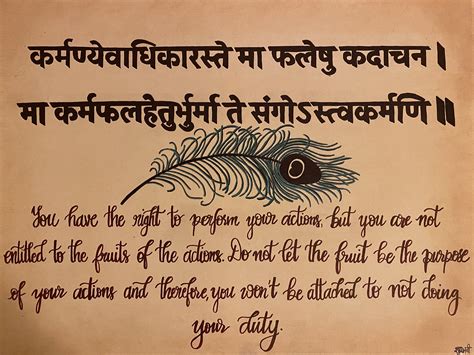 कर्मण्येवाधिकारस्ते मा फलेषु कदाचन।
मा कर्मफलहेतुर्भुर्मा ते संगोऽस्त्वकर्मणि॥
You have the right to perform your actions, but you are not
entitled to the fruits of the actions. Do not let the fruit be the purpose
of your actions and therefore, you won't be attached to not doing
your duty.